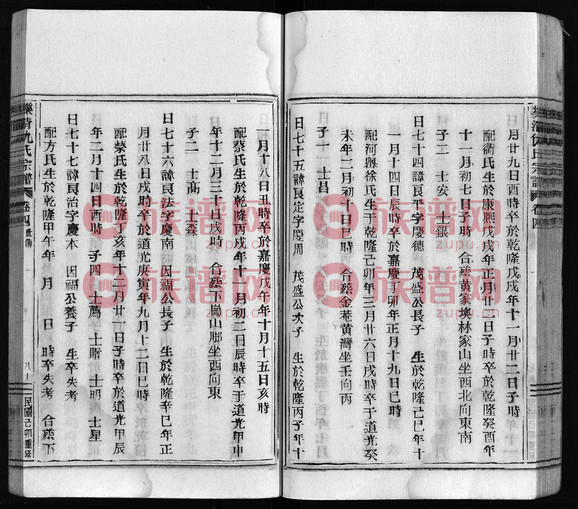 月廿九日酉時卒於乾隆戊戌年十一月廿二日子時
配衛氏生於康熙戊戌年正月廿二日子時卒於乾隆癸酉年
十月初七日子時 合葬黃家墺林家山坐西北向東南
子二 士安 士銀
日七十四諱良平字慶德 茂盛公長子 生於乾隆己巳年十
一月十四日辰時卒於嘉慶己卯年正月十九日巳時
配河墺徐氏生于乾隆己卯年三月廿六日戌時卒于道光癸
未年二月初十日巳時 合葬金菴黃灣坐壬向丙
子一 士昌
日七十五諱良定字慶周 茂盛公次子 生於乾隆丙子年十
一月十八日丑時卒於嘉慶戊午年十月十五日亥時
配蔡氏生於乾隆丙戌年十一月初二日辰時卒于道光甲申
年十二月三十日戌時 合葬下崗山脚坐西向東
子二 士高 士森
日七十六諱良法字慶南 因福公長子 生於乾隆辛巳年正
月廿八日戌時卒于道光庚寅年九月十二日巳時
配蔡氏生於乾隆丁亥年十二月廿一日子時卒於道光甲辰
年二月十四日酉時 子四 士萬 士贈 士明 士星
日七十七諱良治字慶本 因福公養子 生卒失考
配方氏生於乾隆甲午年 月 日 時卒失考 合葬下
樂清仇氏宗譜 卷四
民國己卯重修
族谱网
zupu.cn